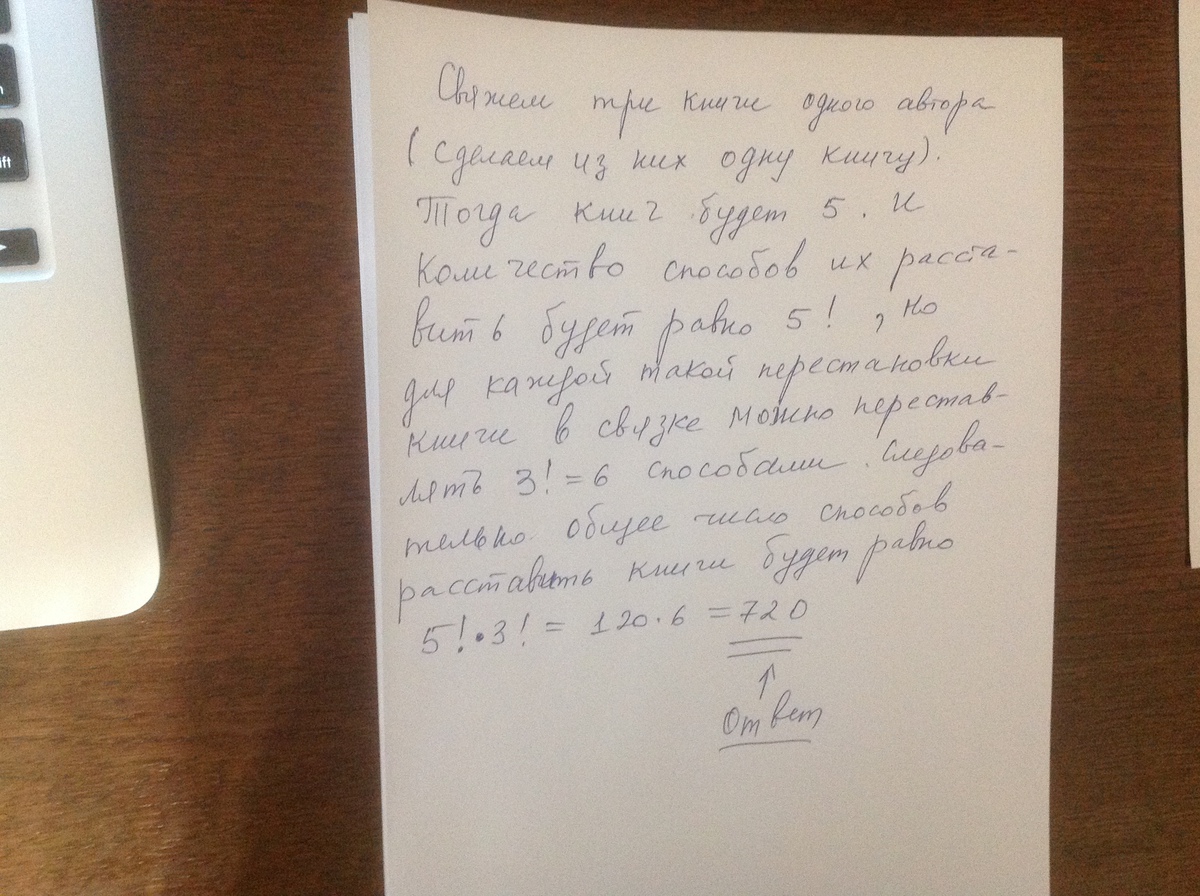 Свяжем три книги одного автора
(сделаем из них одну книгу).
Тогда книг будет 5. И
количество способов их расста-
вить будет равно 5! , но
для каждой такой перестановки
книги в связке можно перестав-
лять 3! = 6 способами. Следова-
тельно общее число способов
расставить книги будет равно
5! • 3! = 120 · 6 = 720
↑
Ответ
ift